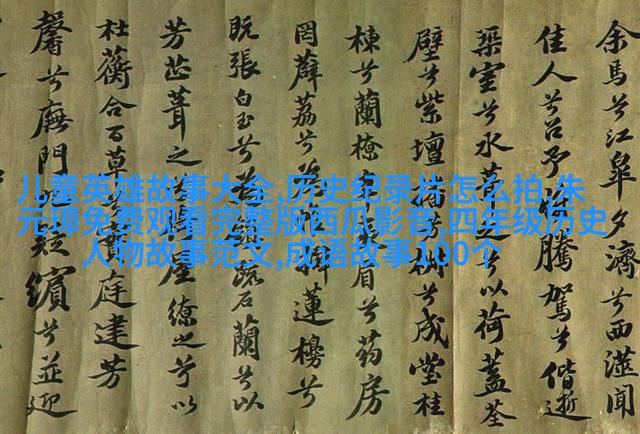 儿童英雄故事大全,历史纪录片怎么拍,朱
元璋免费观看完整版西瓜影音,四年级历史
人物故事范文,成语故事100个
余馬兮江皋夕濟兮西澨聞
佳人兮召予騰駕兮偕逝
築室兮水葺之以荷蓋荃
壁兮紫壇兮成堂桂
棟兮蘭橑眉兮葯房
罔薜荔兮蓮櫋兮
既張白玉兮疏石蘭兮以
芳芷葺之屋繚之兮以
杜蘅合百草庭建芳
馨兮廡門嶷繽兮並迎